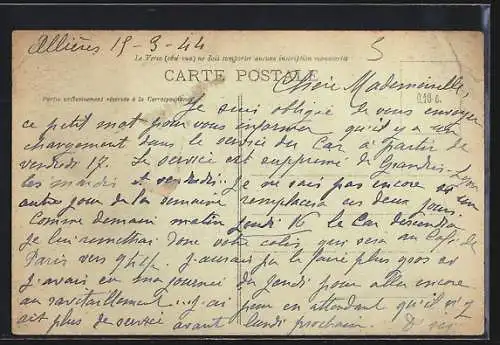 Allières 15-3-44
5
Le Verso (côté vue) ne doit comporter aucune inscription manuscrite
CARTE POSTALE
Chère Mademoiselle,
0.10 c.
Partie exclusivement réservée à la Correspondance
Je suis obligé de vous envoyer
ce petit mot pour vous informer qu'il y a un
changement dans le service du Car à partir de
vendredi 17. Le service est supprimé de Grandris
les mardis et vendredis. Je ne sais pas encore si un
autre jour de la semaine remplacera ces deux jours.
Comme demain matin jeudi 16 le Car descendra
je lui remettrai donc votre colis qui sera au Café de
Paris vers 9h J'aurais pu le faire plus gros si
j'avais eu ma journée du jeudi pour aller encore
au ravitaillement... j'ai peur en attendant qu'il n'y
ait plus de service avant lundi prochain. D'ici